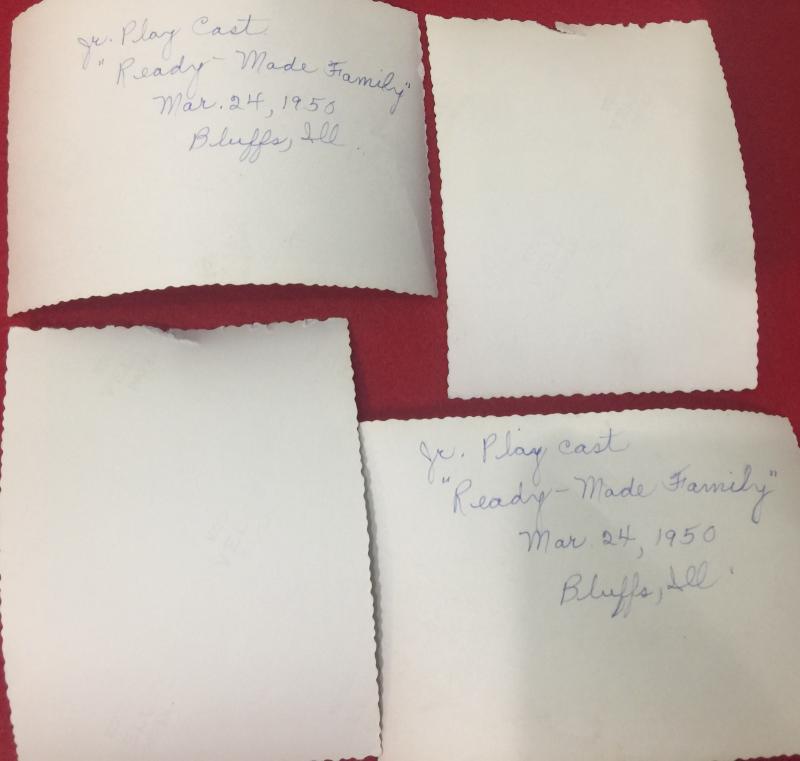 Jr. Play Cast
"Ready-Made Family"
Mar. 24, 1950
Bluffs, Ill.
Jr. Play cast
"Ready-Made Family"
Mar. 24, 1950
Bluffs, Ill.